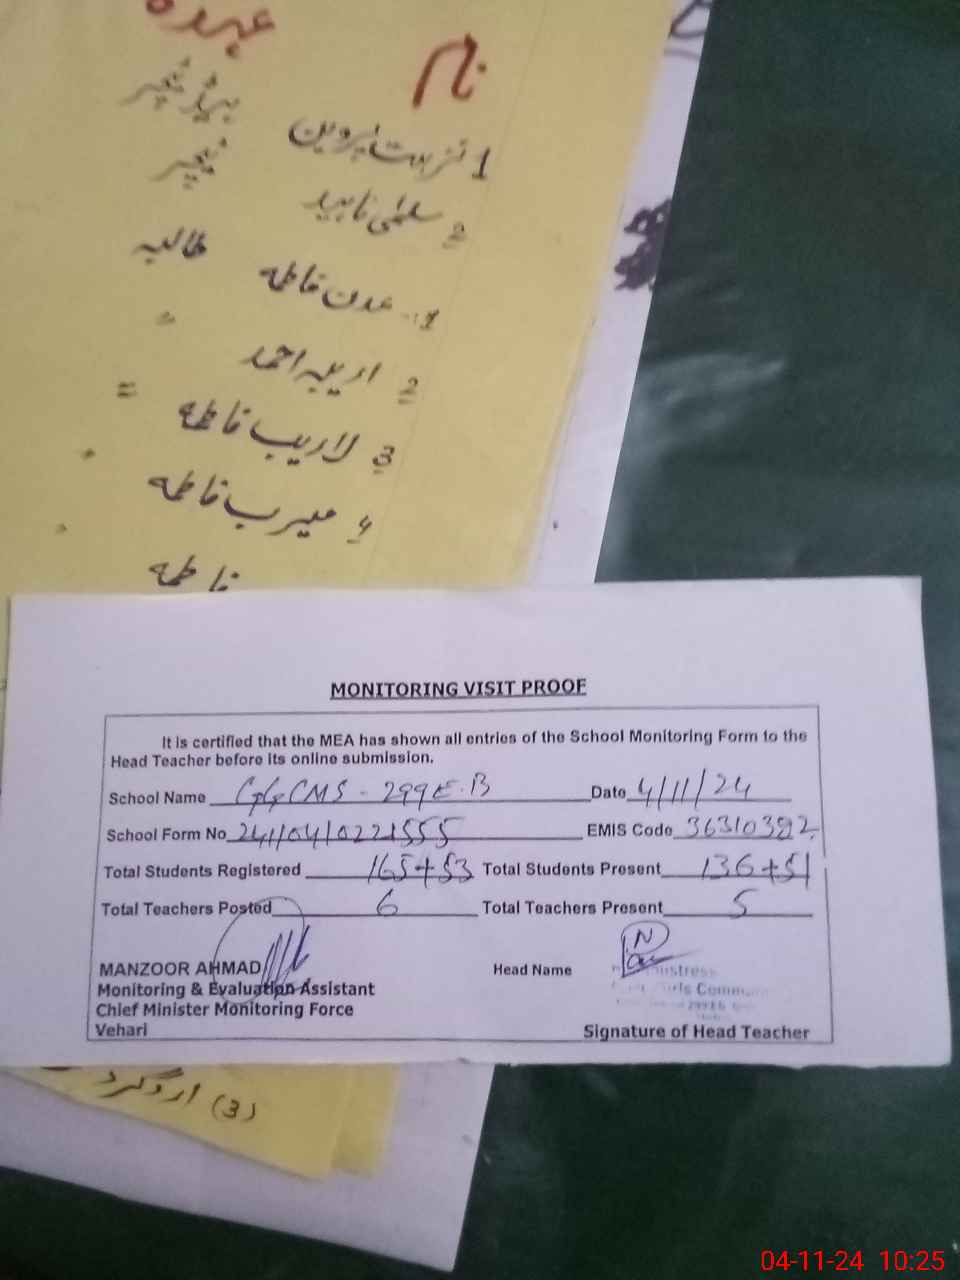 نام عہدہ
1 نزہت پروین ہیڈ ٹیچر
2 سلمیٰ ناہید ٹیچر
1 عدن فاطمہ طالبہ
2 اریبہ احمد "
3 لاریب فاطمہ =
4 میرب فاطمہ "
فاطمہ
MONITORING VISIT PROOF
It is certified that the MEA has shown all entries of the School Monitoring Form to the
Head Teacher before its online submission.
School Name GGCMS - 299 E.B Date 4/11/24
School Form No EMIS Code 36310392
Total Students Registered 165+53 Total Students Present 136+51
Total Teachers Posted 6 Total Teachers Present 5
MANZOOR AHMAD Head Name
Monitoring & Evaluation Assistant
Chief Minister Monitoring Force
Vehari Signature of Head Teacher
(3) اردگرد
04-11-24 10:25